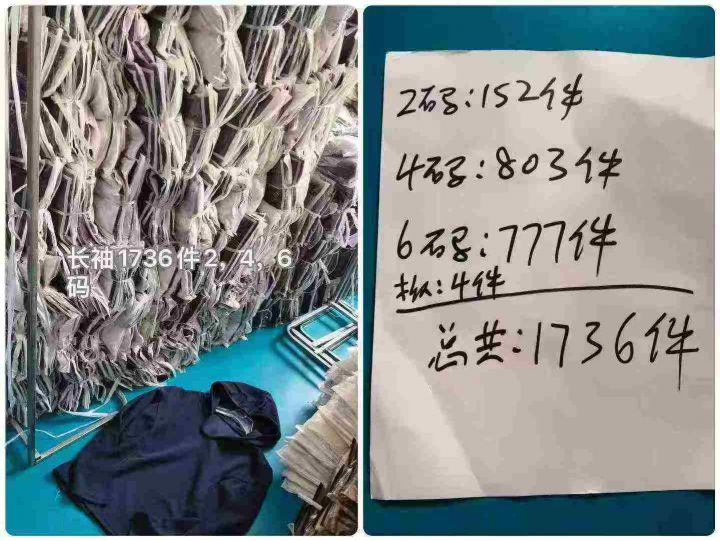 长袖1736件2，4，6
码
2码:152件
4码:803件
6码:777件
:4件
总共:1736件